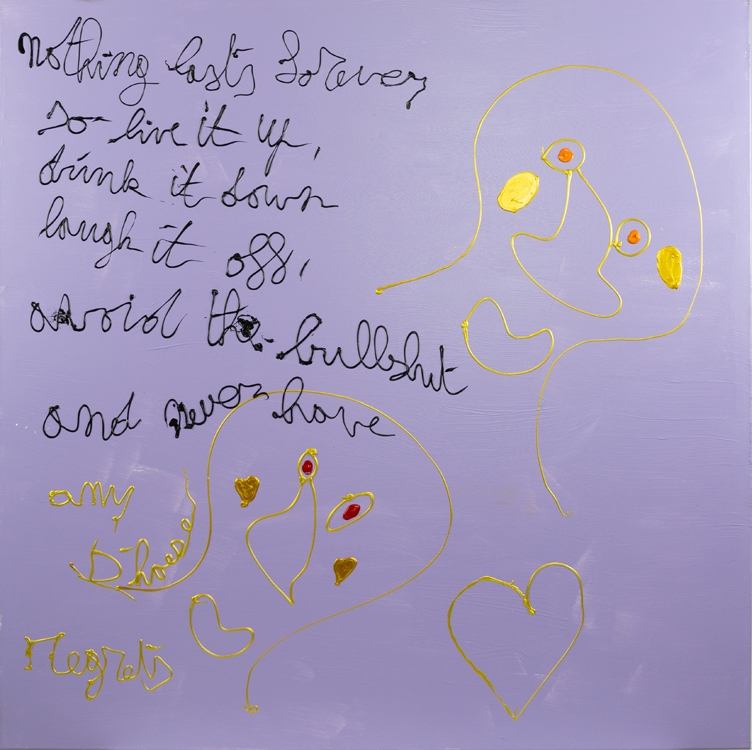 nothing lasts forever
so live it up,
drink it down
laugh it off,
avoid the bullshit
and never have
any
D'haese
regrets